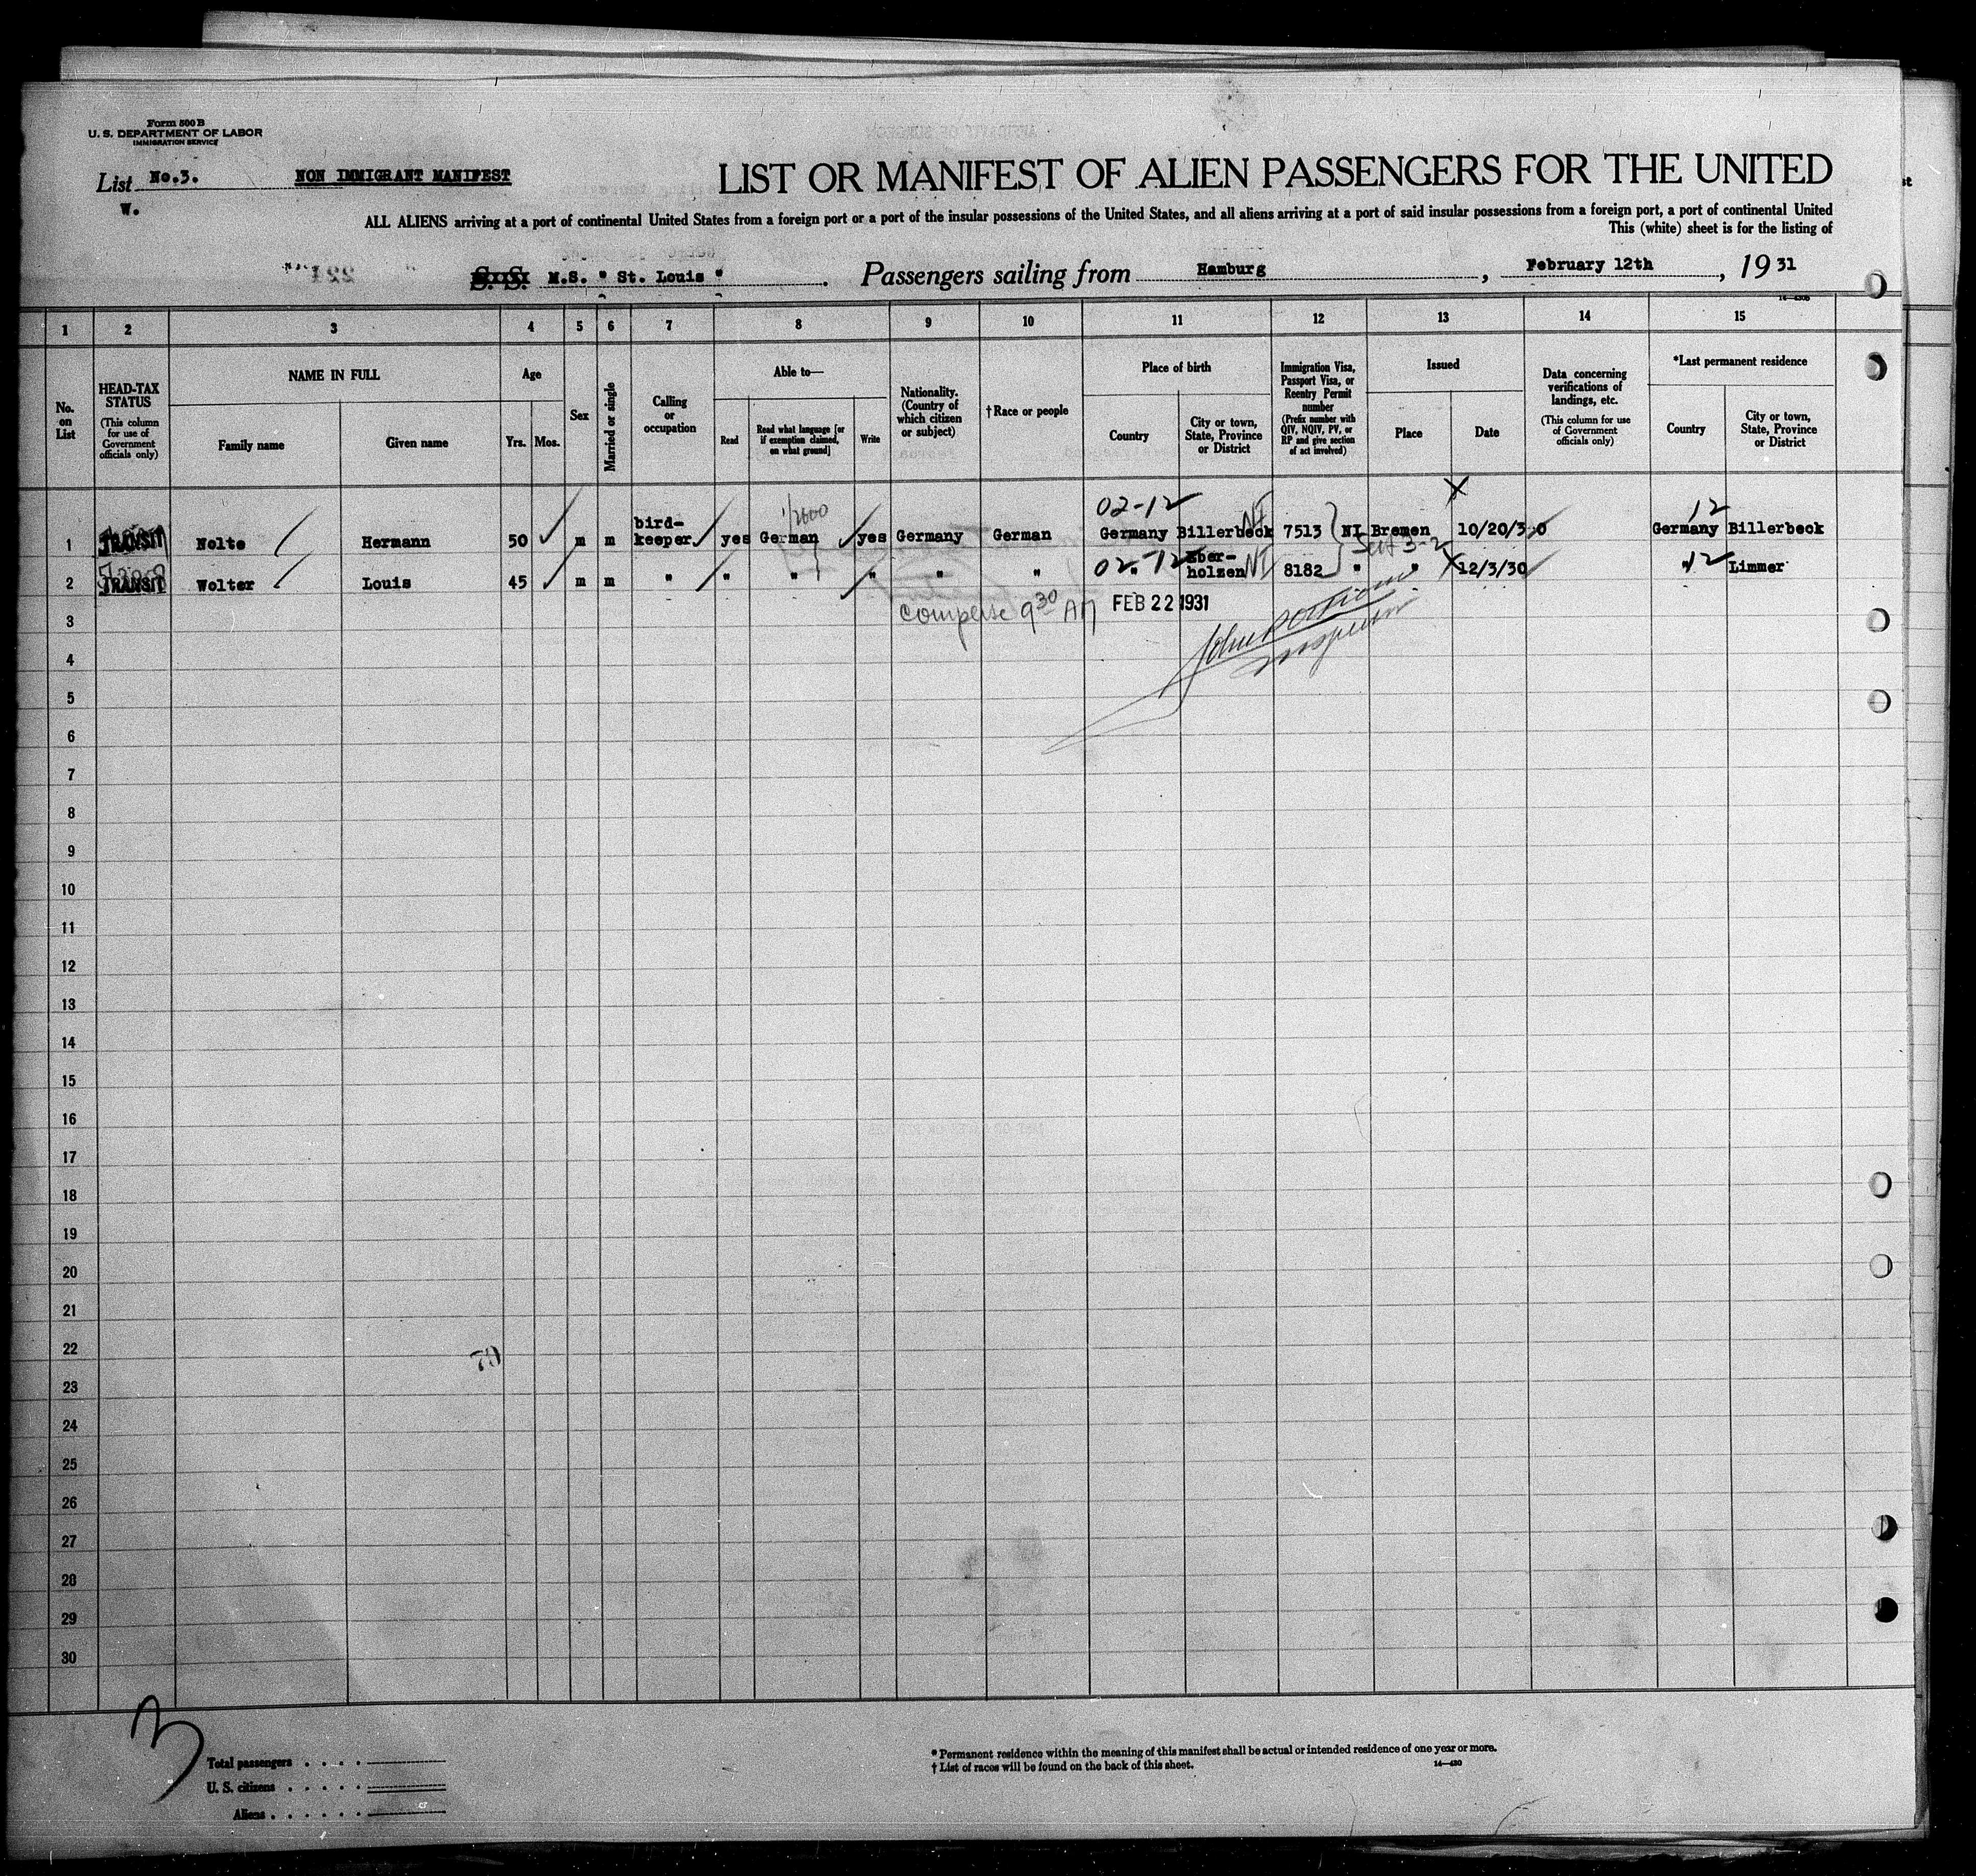 Form 500 B
U. S. DEPARTMENT OF LABOR
IMMIGRATION SERVICE
List No.3. NON IMMIGRANT MANIFEST
W.
LIST OR MANIFEST OF ALIEN PASSENGERS FOR THE UNITED
ALL ALIENS arriving at a port of continental United States from a foreign port or a port of the insular possessions of the United States, and all aliens arriving at a port of said insular possessions from a foreign port, a port of continental United
This (white) sheet is for the listing of
S. S. M.S. " St. Louis " . Passengers sailing from Hamburg , February 12th , 19 31
1 2 3 4 5 6 7 8 9 10 11 12 13 14 15
No. on List
HEAD-TAX STATUS
(This column for use of Government officials only)
NAME IN FULL
Family name
Given name
Age
Yrs. Mos.
Sex
Married or single
Calling or occupation
Able to—
Read
Read what language [or if exemption claimed, on what ground]
Write
Nationality. (Country of which citizen or subject)
†Race or people
Place of birth
Country
City or town, State, Province or District
Immigration Visa, Passport Visa, or Reentry Permit number
(Prefix number with QIV, NQIV, PV, or RP and give section of act involved)
Issued
Place
Date
Data concerning verifications of landings, etc.
(This column for use of Government officials only)
*Last permanent residence
Country
City or town, State, Province or District
02-12 X 12
1 TRANSIT Nolte Hermann 50 m m bird-keeper yes German yes Germany German Germany Billerbeck NI 7513 NI Bremen 10/20/30 Germany Billerbeck
02-12 3-2
2 TRANSIT Wolter Louis 45 m m " " " " " " " Eber-holzen NI 8182 " " X 12/3/30 " 12 Limmer
9 30 AM FEB 22 1931
3
4
Inspector
5
6
7
8
9
10
11
12
13
14
15
16
17
18
19
20
21
22
79
23
24
25
26
27
28
29
30
3
Total passengers . . . .
U. S. citizens . . . . .
Aliens . . . . . .
* Permanent residence within the meaning of this manifest shall be actual or intended residence of one year or more.
† List of races will be found on the back of this sheet. 14—430